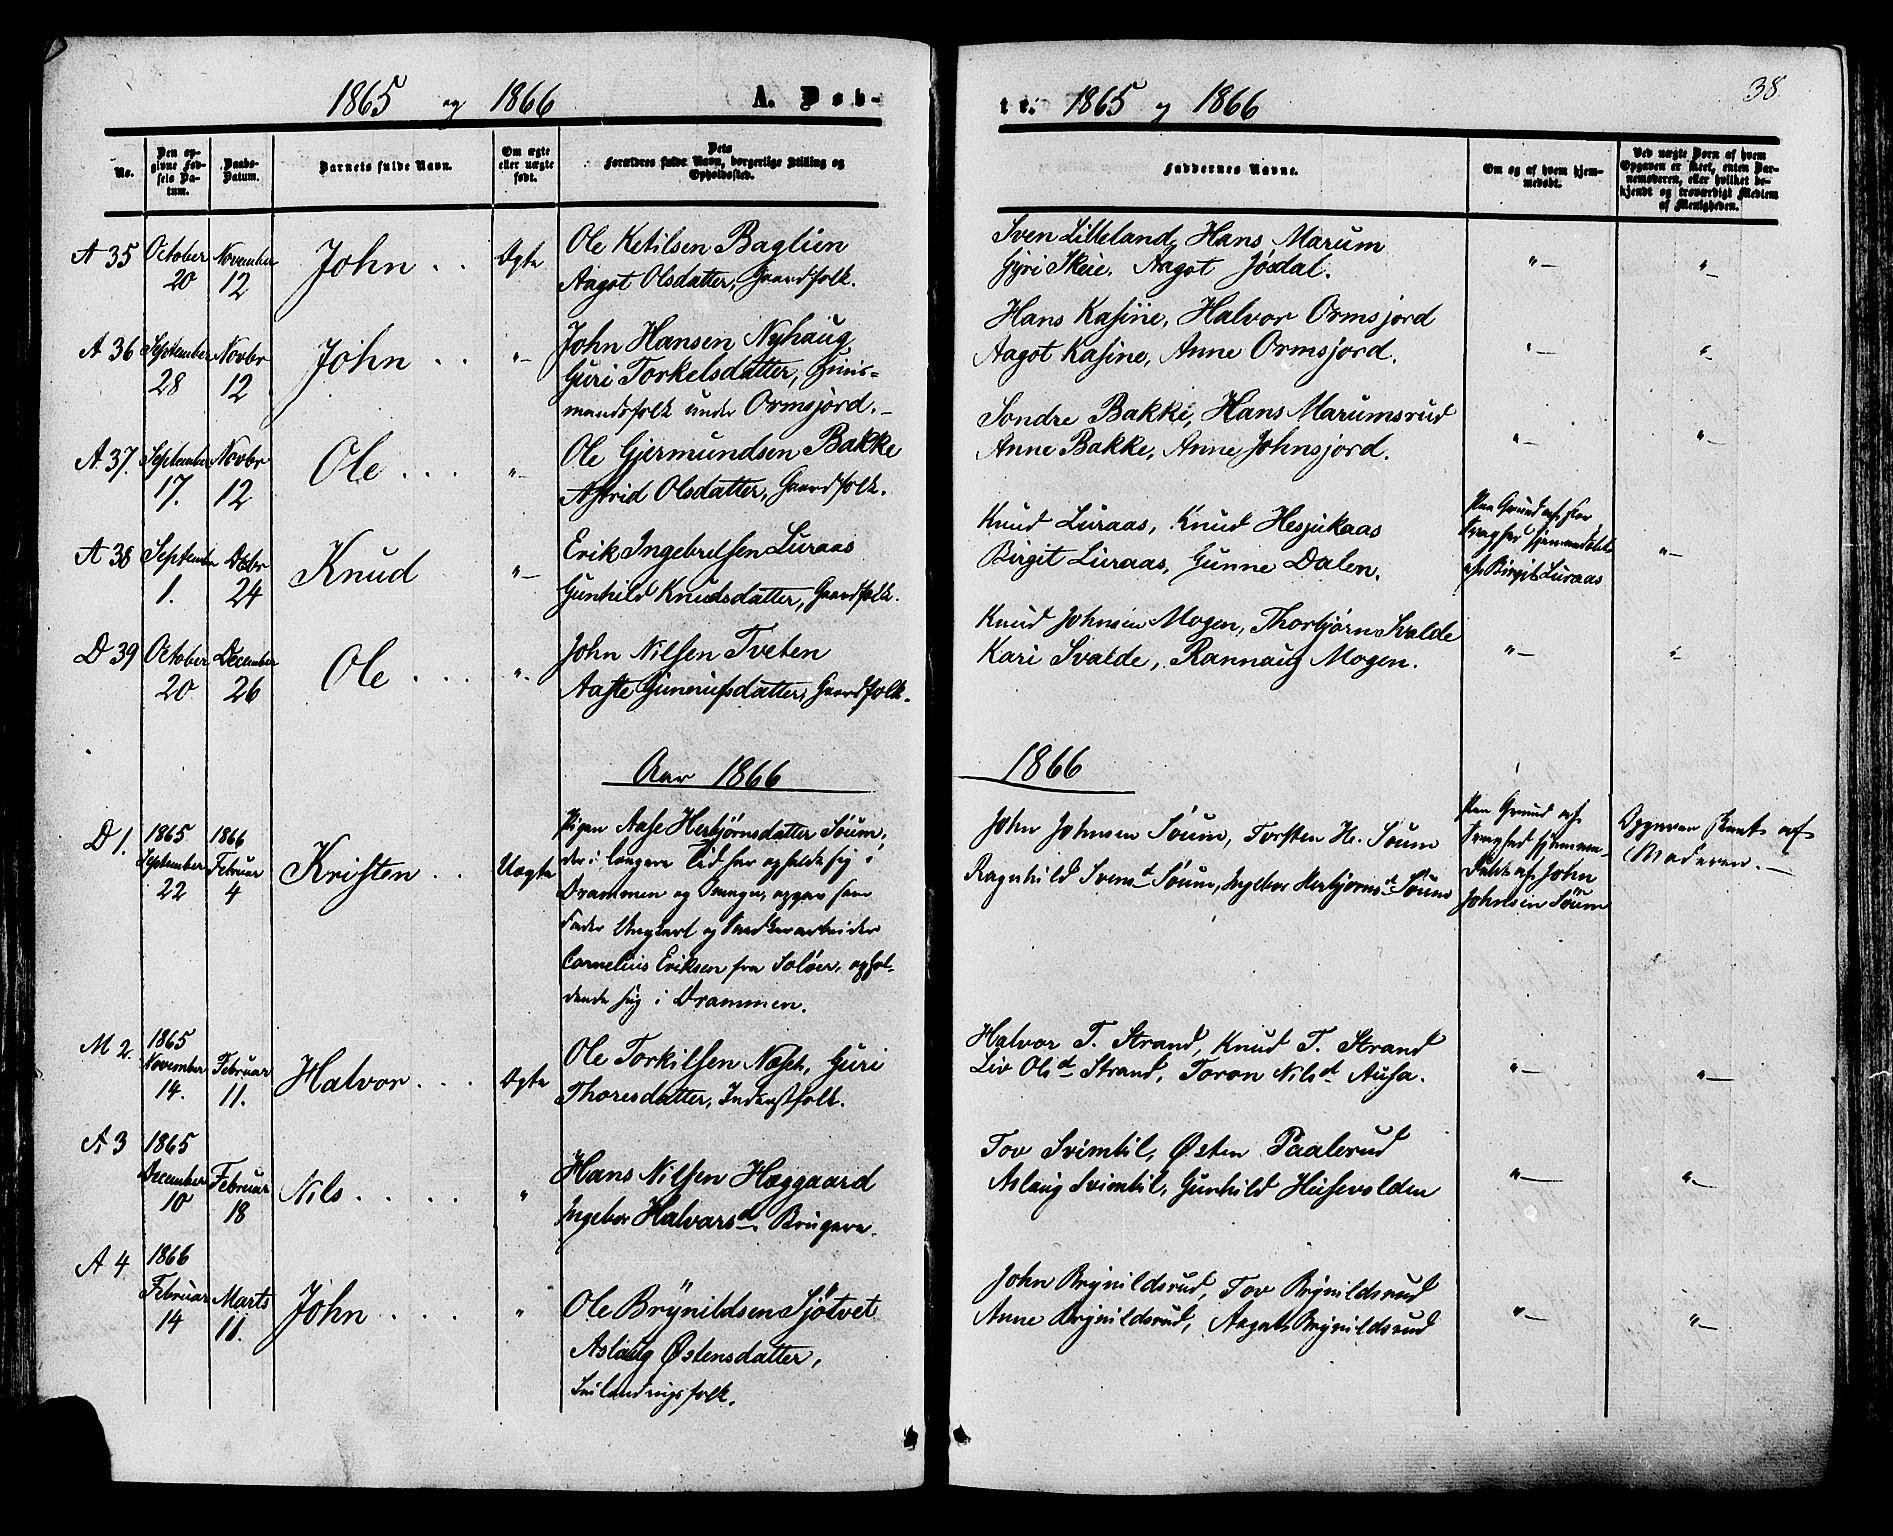 1865 og 1866 A. Døb-
No.
Den opgivne Fødsels Datum.
Daabs-Datum.
Barnets fulde Navn.
Om ægte eller uægte født.
Dets Forældres fulde Navn, borgerlige Stilling og Opholdssted.
A 35 October 20 November 12 John Ægte
Ole Ketilsen Baglien
Aagot Olsdatter, Gaardfolk.
A 36 September 28 Novbr 12 John "
John Hansen Nyhaug
Guri Torkelsdatter, Huus=
mandsfolk under Ormsjord.
A 37 September 17. Novbr 12 Ole "
Ole Gjermundsen Bakke
Astrid Olsdatter, Gaardfolk.
A 38 September 1. Decbr 24 Knud "
Erik Ingebretsen Luraas
Gunhild Knudsdatter, Gaardfolk.
D 39 October 20 December 26 Ole "
John Nilsen Tveten
Aaste Gunnufsdatter, Gaardfolk.
Aar 1866
D 1. 1865 September 22 1866 Februar 4 Kristen Uægte
Pigen Aase Herbjørnsdatter Søum,
der i længere Tid har opholdt sig i
Drammen og Omegn, opgav som
Fader Ungkarl og
Cornelius Eriksen fra Soløer, ophol-
dende sig i Drammen.
M 2. 1865 November 14. Februar 11. Halvor Ægte
Ole Torkilsen Næset, Guri
Thoresdatter, Inderstfolk.
A 3 1865 December 10 Februar 18 Nils "
Hans Nilsen Hæggaard
Ingebor Halvarsd. Brugere.
A 4 1866 Februar 14 Marts 11. John "
Ole Brynildsen Sjøtvet
Aslaug Østensdatter,
Selvandringsfolk.
te. 1865 og 1866 38
Faddernes Navne.
Om og af hvem hjemmedøbt.
Ved uægte Børn af hvem Opgaven er skeet, enten Barnemoderen, eller hvilket bekjendt og troværdigt Medlem af Menigheden.
Sven Lilleland, Hans Marum
Gyri Skeie, Aagot Jøsdal.
Hans Kasine, Halvor Ormsjord
Aagot Kasine, Anne Ormsjord.
Sondre Bakke, Hans Marumsrud
Anne Bakke, Anne Johnsjord.
Knud Luraas, Knud Hesjukaas
Birgit Luraas, Gunne Dalen.
Paa Grund af stor
Svaghed hjemmedøbt
af Birgit Luraas
Knud Johnsen Mogen, Thorbjørn Svalde
Kari Svalde, Rannaug Mogen.
1866
John Johnsen Søum, Torsten H. Søum
Ragnhild Svensd Søum, Ingebor Herbjørnsd Søum
Paa Grund af
Svaghed hjemme-
døbt af John
Johnsen Søum
Opgaven skeet af
Moderen.
Halvor T. Strand, Knud T. Strand
Liv Olsd Strand, Toron Nilsd Ausa.
Tov Svimbil, Østen Paalerud
Aslaug Svimbil, Gunhild Husevolden
John Brynildsrud, Tov Brynildsrud
Anne Brynildsrud, Aagot Brynildsrud